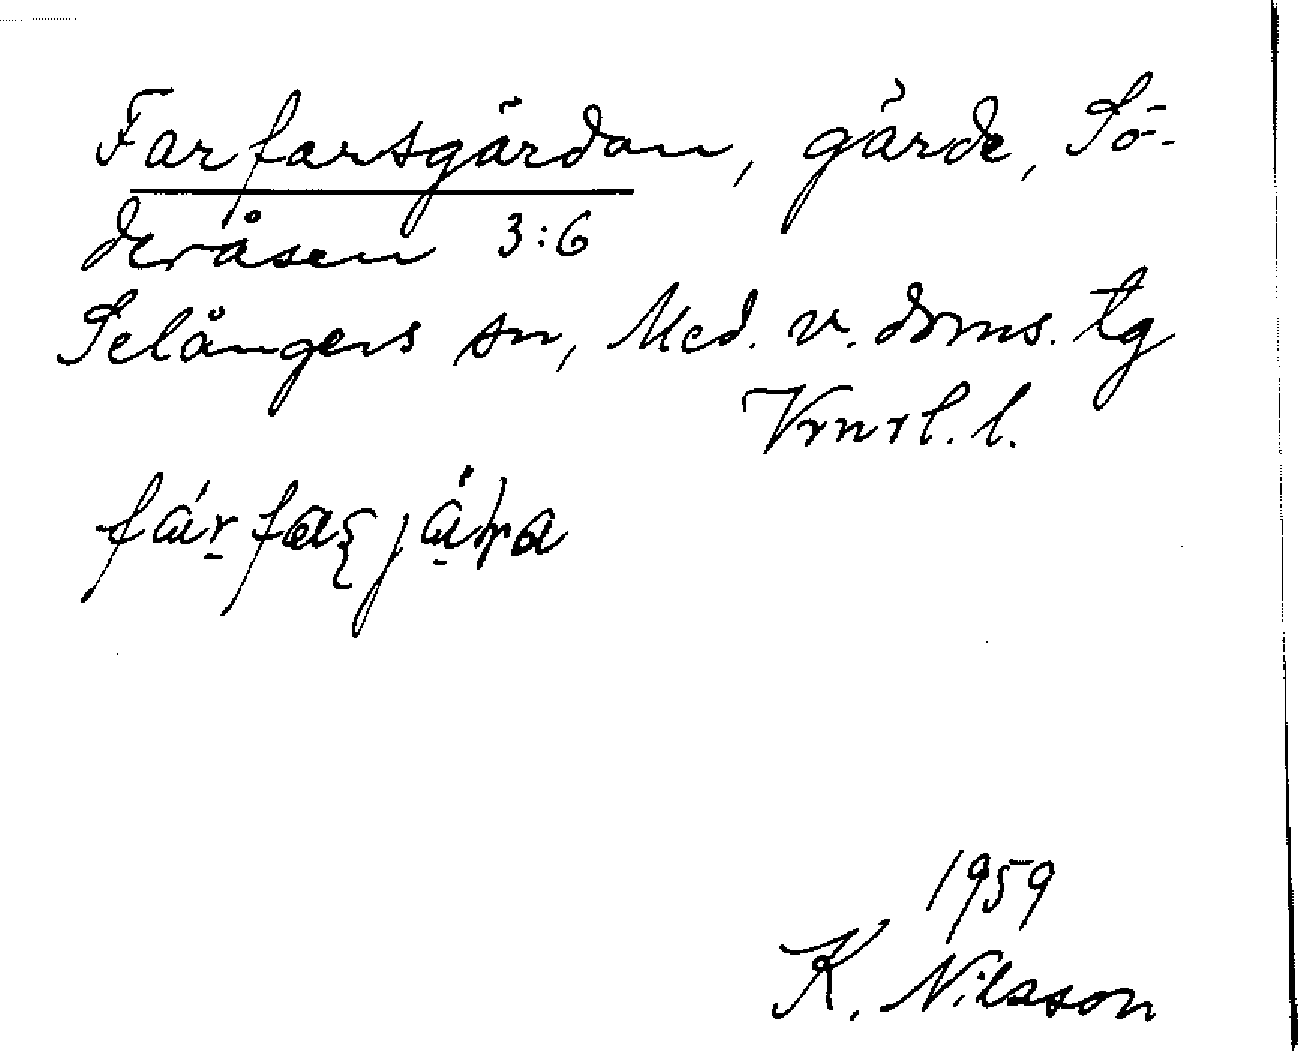 Farfarsgärdan, gärde, Sö-
deråsen 3:6
Selångers sn, Med. v. doms. tg
Vrnrl. l.
1959
K. Nilsson